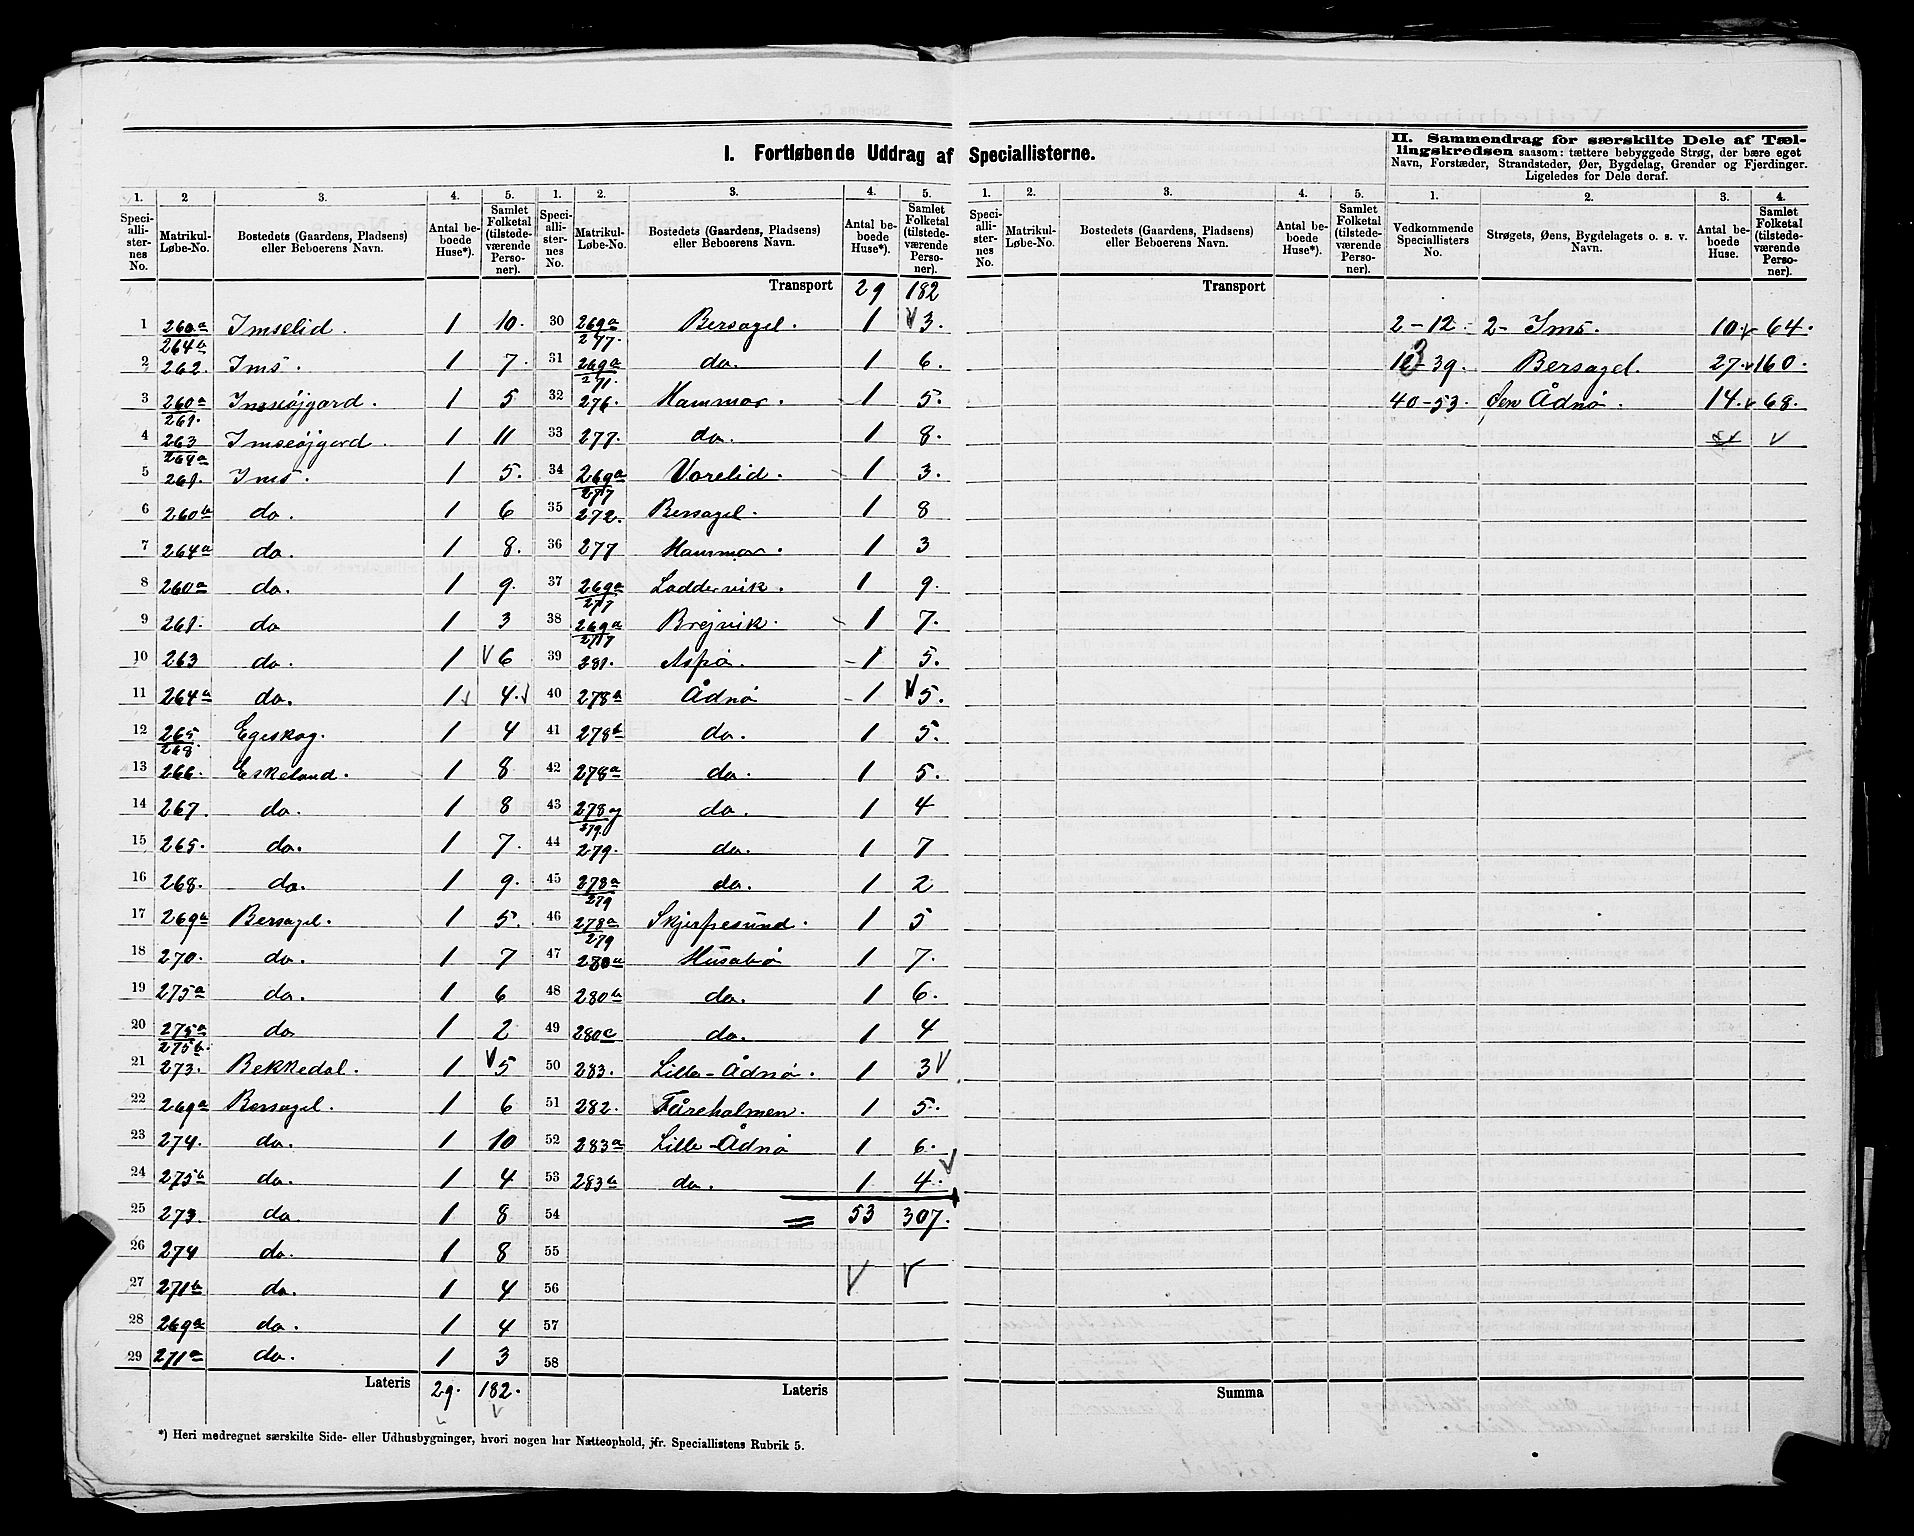 I. Fortløbende Uddrag af Speciallisterne.
II. Sammendrag for særskilte Dele af Tællingskredsen saasom: tættere bebyggede Strøg, der bære eget
Navn, Forstæder, Strandsteder, Øer, Bygdelag, Grender og Fjerdinger.
Ligeledes for Dele deraf.
1. 2 3. 4. 5. 1. 2. 3. 4. 5. 1. 2. 3. 4. 5. 1. 2. 3. 4.
Speciallisternes No. Matrikul-Løbe-No. Bostedets (Gaardens, Pladsens) eller Beboerens Navn. Antal beboede Huse*). Samlet Folketal (tilstedeværende Personer).
Speciallisternes No. Matrikul-Løbe-No. Bostedets (Gaardens, Pladsens) eller Beboerens Navn. Antal beboede Huse*). Samlet Folketal (tilstedeværende Personer).
Speciallisternes No. Matrikul-Løbe-No. Bostedets (Gaardens, Pladsens) eller Beboerens Navn. Antal beboede Huse*). Samlet Folketal (tilstedeværende Personer).
Vedkommende Speciallisters No. Strøgets, Øens, Bygdelagets o. s. v. Navn. Antal beboede Huse. Samlet Folketal (tilstedeværende Personer).
1 260a/264b Imselid. 1 10.
2 262. Ims. 1 7.
3 260a/261. Imseøjgard. 1 5
4 263/264a Imseøjgard 1 11
5 261. Ims. 1 5.
6 260b do. 1 6
7 264a do. 1 8.
8 260a do. 1 9.
9 261. do 1 3
10 263 do. 1 6
11 264a do. 1 4.
12 265/268. Egeskog. 1 4
13 266. Eskeland. 1 8
14 267. do. 1 8
15 265. do. 1 7.
16 268. do. 1 9.
17 269a Bersagel. 1 5.
18 270. do. 1 7
19 275a do. 1 6
20 275a/275b. do 1 2
21 273. Bekkedal. 1 5
22 269a Bersagel. 1 6
23 274. do. 1 10
24 275b do. 1 4
25 273. do. 1 8
26 274 do. 1 8
27 271b do. 1 4
28 269a do. 1 4
29 271a do. 1 3
Lateris 29. 182.
Transport 29 182
30 269a/277. Bersagel. 1 3.
31 269a/271. do. 1 6.
32 276. Hammar. 1 5.
33 277. do. 1 8.
34 269a/277 Vorelid. 1 3.
35 272. Bersagel. 1 8
36 277 Hammar. 1 3
37 269a/277 Laddervik. 1 9.
38 269a/277 Brejvik. 1 7.
39 281. Aspø. 1 5.
40 278a Ådnø 1 5.
41 278b do. 1 5.
42 278a do. 1 5.
43 278a/279. do. 1 4
44 279. do. 1 7
45 278a/279 do. 1 2
46 278a/279 Skjerpesund. 1 5
47 280a Husabø 1 7.
48 280b do. 1 6.
49 280c do. 1 4
50 283. Lille-Ådnø. 1 3
51 282. Fåreholmen. 1 5.
52 283a Lille-Ådnø 1 6.
53 283b do. 1 4.
54 = 53 307.
55
56
57
58
Lateris
Transport
Summa
2-12. 2- Ims. 10 64.
13-39. Bersagel. 27. 160.
40-53. Øen Ådnø. 14. 68.
*) Heri medregnet særskilte Side- eller Udhusbygninger, hvori nogen har Natteophold, jfr. Speciallistens Rubrik 5.